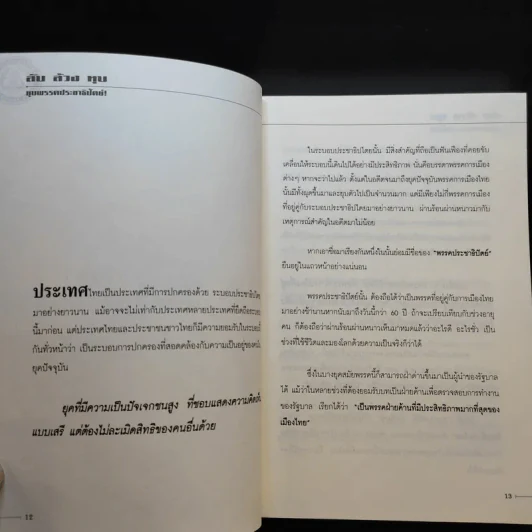 ลับ ลวง ทุบ
ขุมพรรคประชาธิปัตย์!
ประเทศไทยเป็นประเทศที่มีการปกครองด้วย ระบอบประชาธิปไตย
มาอย่างยาวนาน แม้อาจจะไม่เท่ากับประเทศหลายประเทศที่ยึดถือระบอบ
นี้มาก่อน แต่ประเทศไทยและประชาชนชาวไทยก็มีความยอมรับในระบอบนี้
กันทั่วหน้าว่า เป็นระบอบการปกครองที่สอดคล้องกับความเป็นอยู่ของคน
ยุคปัจจุบัน
ยุคที่มีความเป็นปัจเจกชนสูง ที่ชอบแสดงความคิดเห็น
แบบเสรี แต่ต้องไม่ละเมิดสิทธิของคนอื่นด้วย
12
ในระบอบประชาธิปไตยนั้น มีสิ่งสำคัญที่ถือเป็นฟันเฟืองที่คอยขับ
เคลื่อนให้ระบอบนี้เดินไปได้อย่างมีประสิทธิภาพ นั่นคือบรรดาพรรคการเมือง
ต่างๆ หากจะว่าไปแล้ว ตั้งแต่ในอดีตจนมาถึงยุคปัจจุบันพรรคการเมืองไทย
นั้นมีทั้งผุดขึ้นมาและยุบตัวไปเป็นจำนวนมาก แต่มีเพียงไม่กี่พรรคการเมือง
ที่อยู่คู่กับระบอบประชาธิปไตยมาอย่างยาวนาน ผ่านร้อนผ่านหนาวมากับ
เหตุการณ์สำคัญในอดีตมาไม่น้อย
หากเอาชื่อมาเรียงกันหนึ่งในนั้นย่อมมีชื่อของ "พรรคประชาธิปัตย์"
ยืนอยู่ในแถวหน้าอย่างแน่นอน
พรรคประชาธิปัตย์นั้น ต้องถือได้ว่าเป็นพรรคที่อยู่คู่กับการเมืองไทย
มาอย่างช้านานหากนับมาถึงวันนี้กว่า 60 ปี ถ้าจะเปรียบเทียบกับช่วงอายุ
คน ก็ต้องถือว่าผ่านร้อนผ่านหนาวเห็นมาหมดแล้วว่าอะไรดี อะไรชั่ว เป็น
ช่วงที่ใช้ชีวิตและมองโลกด้วยความเป็นจริงก็ว่าได้
ซึ่งในบางยุคสมัยพรรคนี้ก็สามารถฝ่าด่านขึ้นมาเป็นผู้นำของรัฐบาล
ได้ แม้ว่าในหลายช่วงที่ต้องยอมรับบทเป็นฝ่ายค้านเพื่อตรวจสอบการทำงาน
ของรัฐบาล เรียกได้ว่า "เป็นพรรคฝ่ายค้านที่มีประสิทธิภาพมากที่สุดของ
เมืองไทย"
13